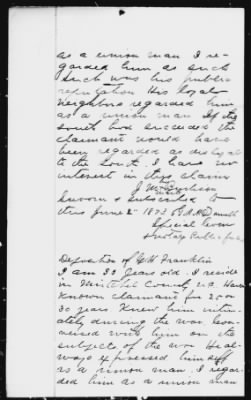 as a union man I re-
garded him as such
Such was his public
reputation His loyal
neighbors regarded him
as a union man If the
South had succeeded the
claimant would have
been regarded as disloyal
to the South. I have no
interest in this claim
his
mark
Sworn & subscribed to
this June 2 1873
Special Com
& Notary Public
Deposition of Franklin
I am 33 years old. I reside
in Mitchel County, N.C. Have
known claimant for 25 or
30 years Knew him intim-
ately during the war Con-
versed with him on the
subject of the war He al-
ways expressed himself
as a union man. I regar-
ded him as a union man